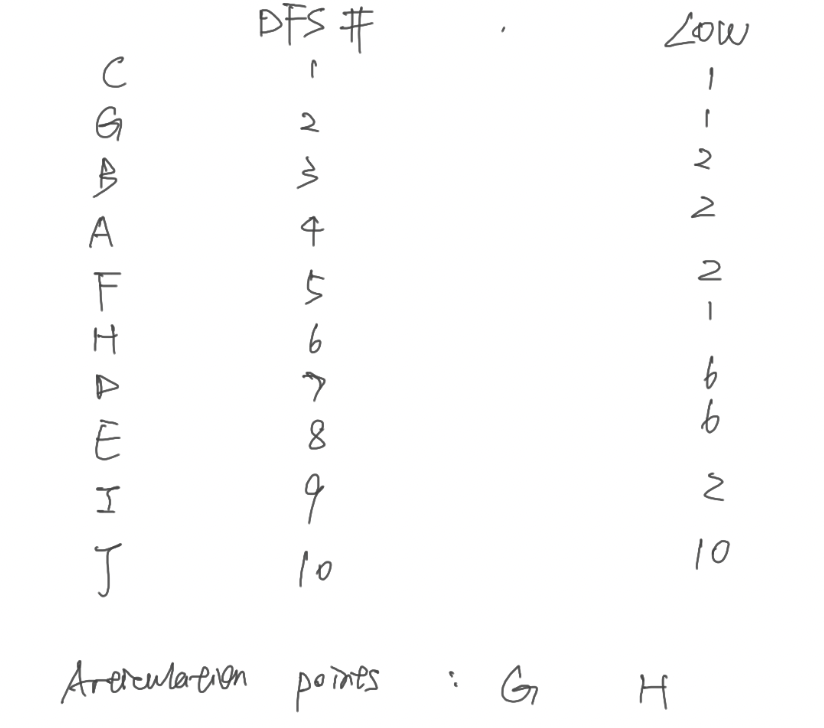 DFS # LOW
C 1 1
G 2 1
B 3 2
A 4 2
F 5 2
H 6 1
D 7 6
E 8 6
I 9 2
J 10 10
Articulation points : G H